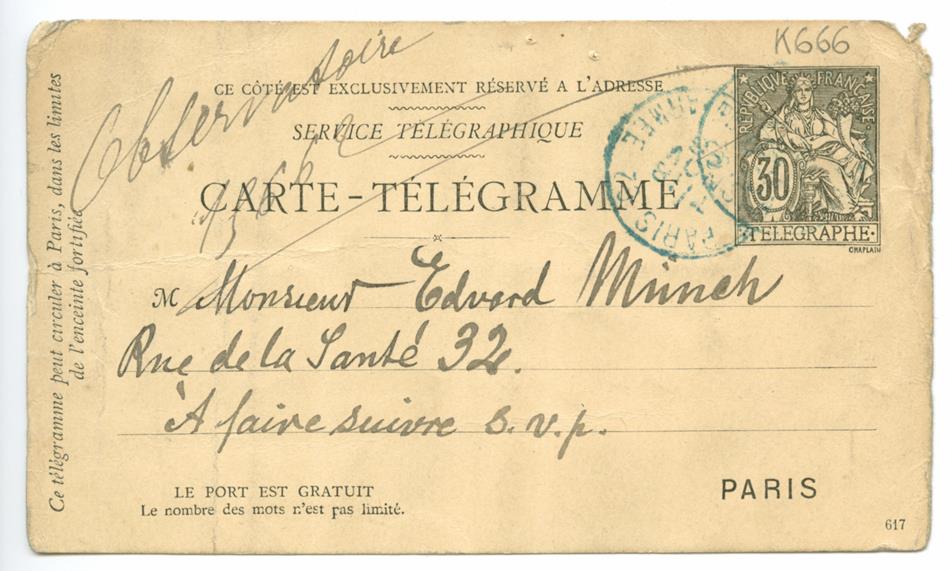 K666
Observatoire
CE CÔTÉ EST EXCLUSIVEMENT RÉSERVÉ A L'ADRESSE
SERVICE TÉLÉGRAPHIQUE
CARTE-TÉLÉGRAMME
RÉPUBLIQUE FRANÇAISE
30
TELEGRAPHE
CHAPLAIN
PARIS
Ce télégramme peut circuler à Paris, dans les limites
de l'enceinte fortifiée
M Monsieur Edvard Münch
Rue de la Santé 32.
À faire suivre s.v.p.
LE PORT EST GRATUIT
Le nombre des mots n'est pas limité.
PARIS
617